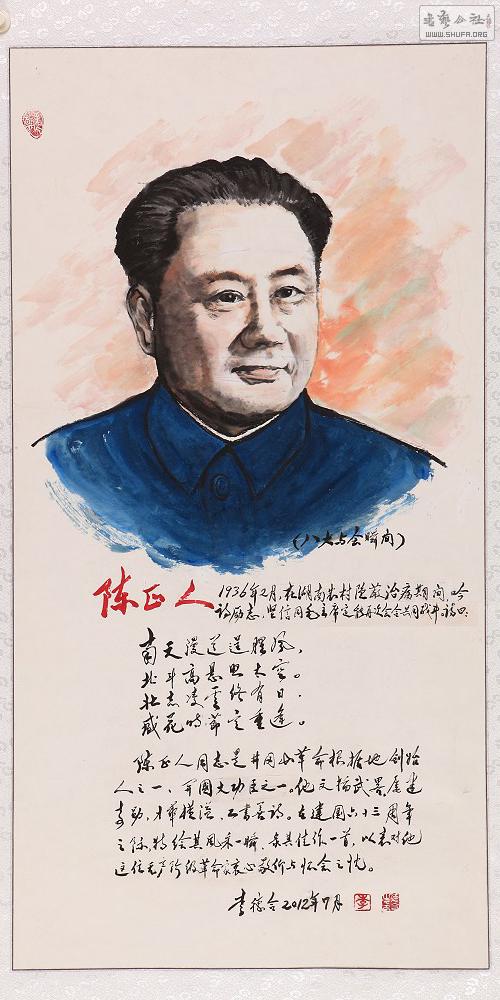 书艺公社
WWW.SHUFA.ORG
(八大与会瞬间)
陈正人
1936年2月,在湖南农村隐蔽治病期间,吟
诗励志,坚信同毛主席定能再次会合共同战斗,诗曰:
南天漫道送腥风,
北斗高悬照太空。
壮志凌云终有日,
感花时节定重逢。
陈正人同志是井冈山革命根据地创始
人之一、开国大功臣之一。他文韬武略,屡建
奇勋,才華横溢,工书善诗。在建国六十三周年
之际,特绘其风采一瞬,录其佳作一首,以表对他
这位无产阶级革命家衷心敬仰与怀念之忱。
李德合2012年7月